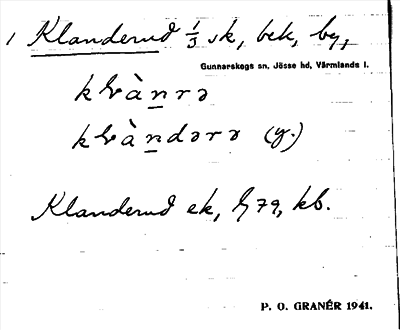 1 Klanderud 1/3 sk, bek, by,
Gunnarskogs sn, Jösse hd, Värmlands l.
klànrə
klàndərə (y.)
Klanderud ek, h 79, kb.
P. O. GRANÉR 1941.